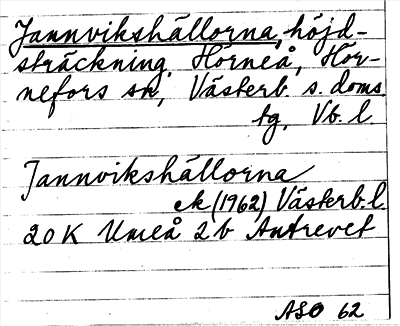 Jannvikshällorna, höjd-
sträckning. Hörneå, Hör-
nefors sn, Västerb. s. doms.
tg, Vb. l.
Jannvikshällorna
ek (1962) Västerb. l.
20 K Umeå 2 b Antrevet
ASO 62